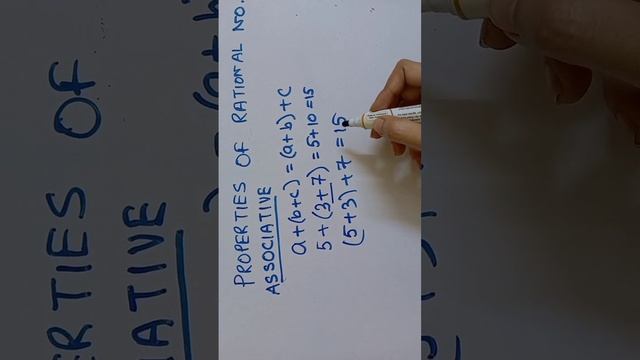 PROPERTIES OF RATIONAL NO.
ASSOCIATIVE
a+(b+c) = (a+b)+c
5+(3+7) = 5+10 =15
(5+3)+7 = 15